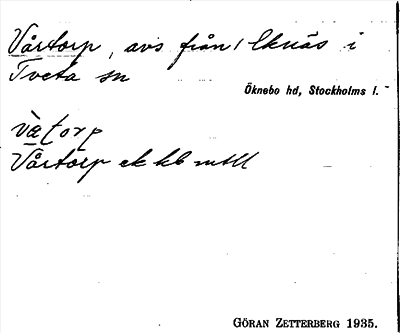 Vårtorp, avs från 1 Eknäs i
Tveta sn
Öknebo hd, Stockholms l.
và̀torp
Vårtorp ek kb mtll
GÖRAN ZETTERBERG 1935.